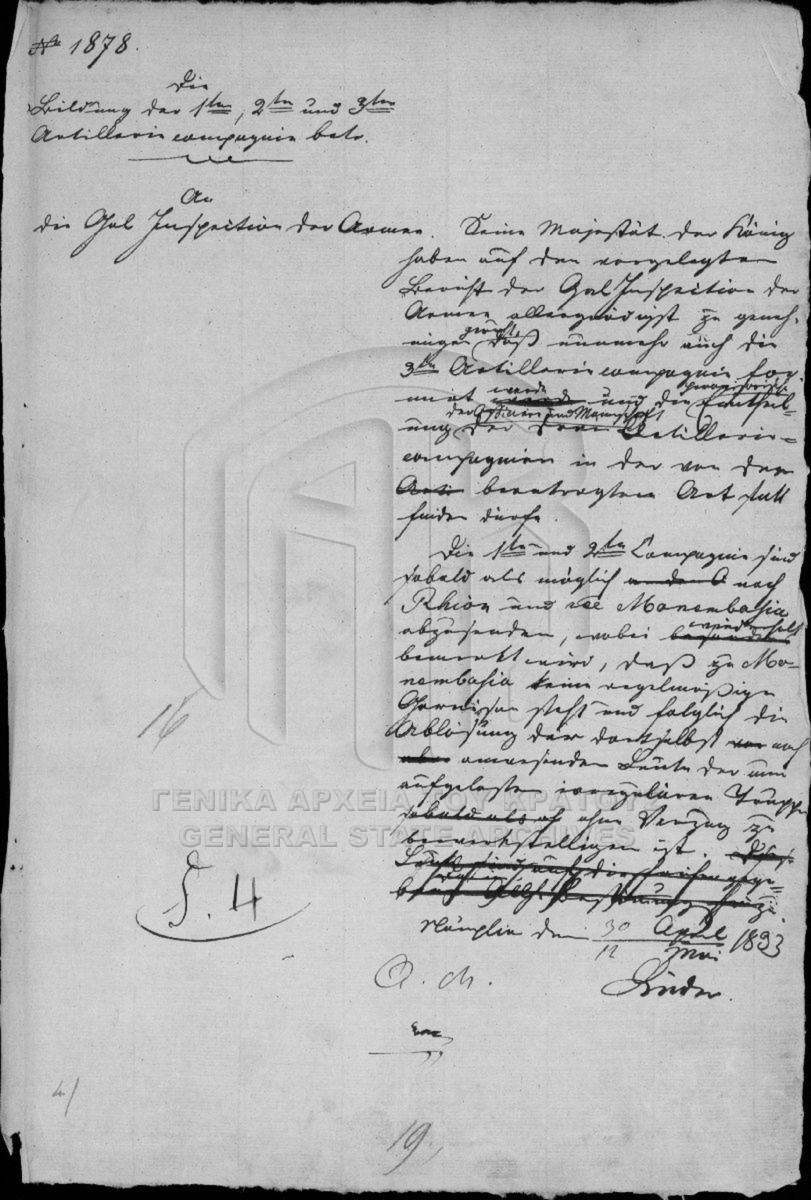 No 1878.
Die
Bildung der 1ten, 2ten und 3ten
Artillerie compagnie betr.
An
die Gal Inspection der Armee.
Seine Majestät der König
haben auf den vorgelegten
Bericht der Gal Inspection der
Armee allergnädigst zu geneh-
migen geruht, daß nunmehr auch die
3te Artillerie compagnie for-
mirt werde und die provisorische Eintheil-
ung der Offiziere und Mannschaft der drei Artillerie-
compagnien in der von der
Arti beantragten Art statt
finden dürfe.
Die 1te und 2te Compagnie sind
sobald als möglich nach
Rhion und Monembasia
abzusenden, wobei wiederholt
bemerkt wird, daß zu Mo-
nembasia keine regelmäßige
Garnison steht und folglich die
Ablösung der dortselbst noch
anwesenden Leute der nun
aufgelösten irregulären Truppen
sobald als ohne Verzug zu
bewerkstelligen ist. Diese
Nauplia den 30 April / 12 Mai 1833
A. ch.
16
§. 4
4)
19.
ΓΕΝΙΚΑ ΑΡΧΕΙΑ ΤΟΥ ΚΡΑΤΟΥΣ
GENERAL STATE ARCHIVES